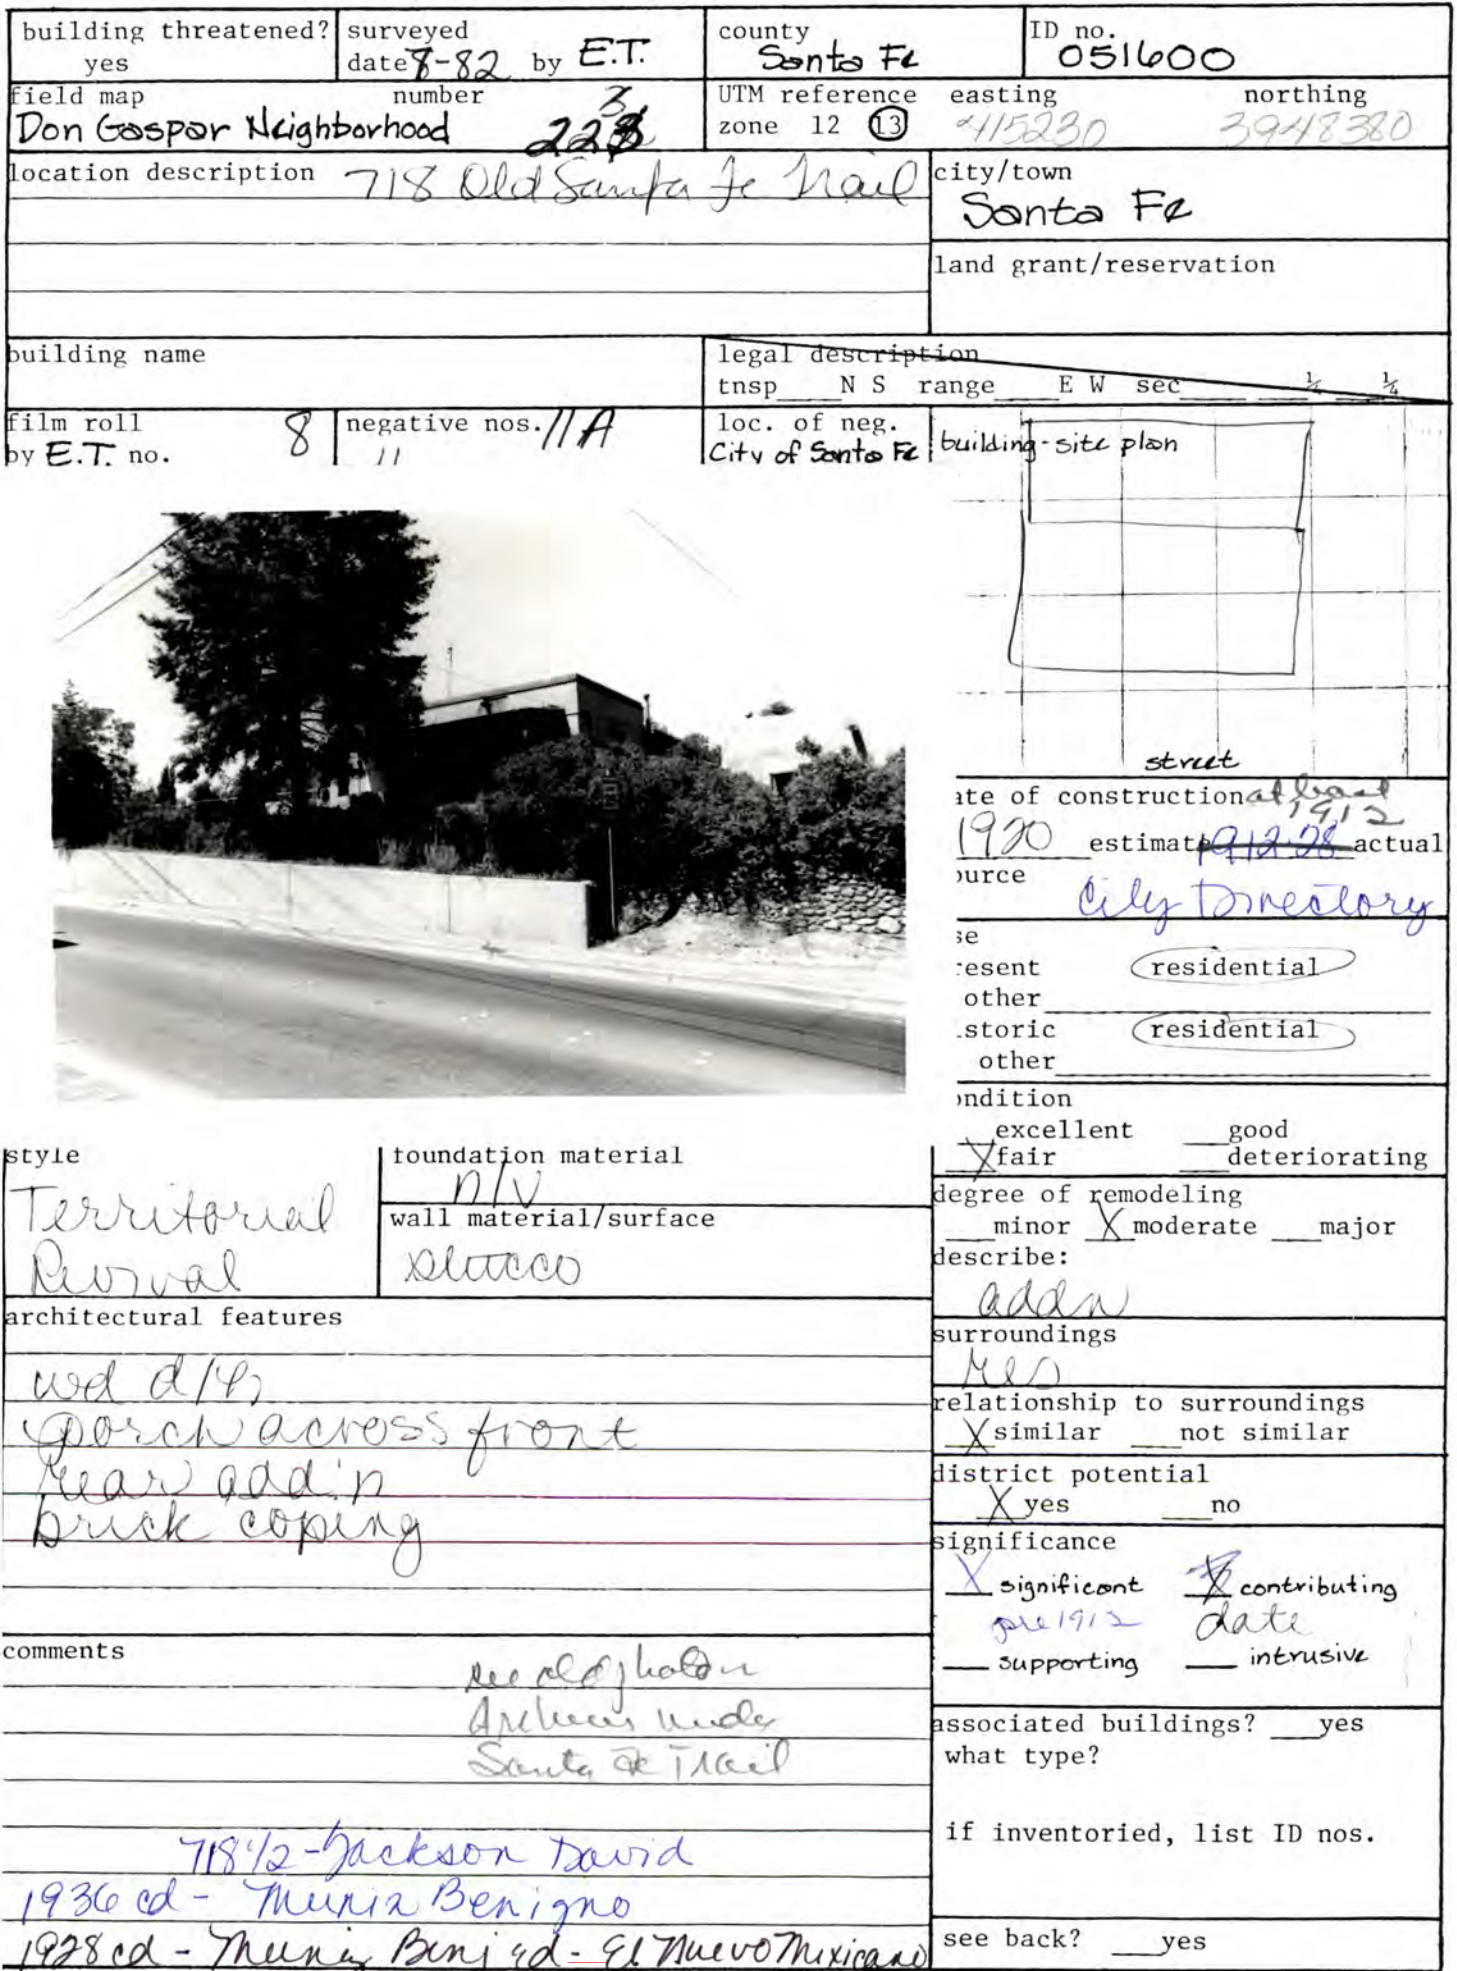 building threatened?
yes
surveyed
date 8-82 by E.T.
county
Santa Fe
ID no.
051600
field map number
Don Gaspar Neighborhood 223
UTM reference easting northing
zone 12 13 415230 3948380
location description 718 Old Santa Fe Trail
city/town
Santa Fe
land grant/reservation
building name
legal description
tnsp N S range E W sec ¼ ¼
film roll
by E.T. no. 8
negative nos. 11A
11
loc. of neg.
City of Santa Fe
building-site plan
street
ate of construction at least
1912
1920 estimate 1912-28 actual
ource
City Directory
se
resent residential
other
storic residential
other
ondition
excellent good
X fair deteriorating
style
Territorial
Revival
foundation material
n/v
wall material/surface
stucco
degree of remodeling
minor X moderate major
describe:
addn
architectural features
wd d/h
porch across front
rear add'n
brick coping
surroundings
res
relationship to surroundings
X similar not similar
district potential
X yes no
significance
X significant X contributing
pre 1912 date
supporting intrusive
comments
see old photo in
Archives under
Santa Fe Trail
718 1/2 - Jackson David
1936 cd - Muniz Benigno
1928 cd - Muniz Beni ed - El Nuevo Mexicano
associated buildings? yes
what type?
if inventoried, list ID nos.
see back? yes